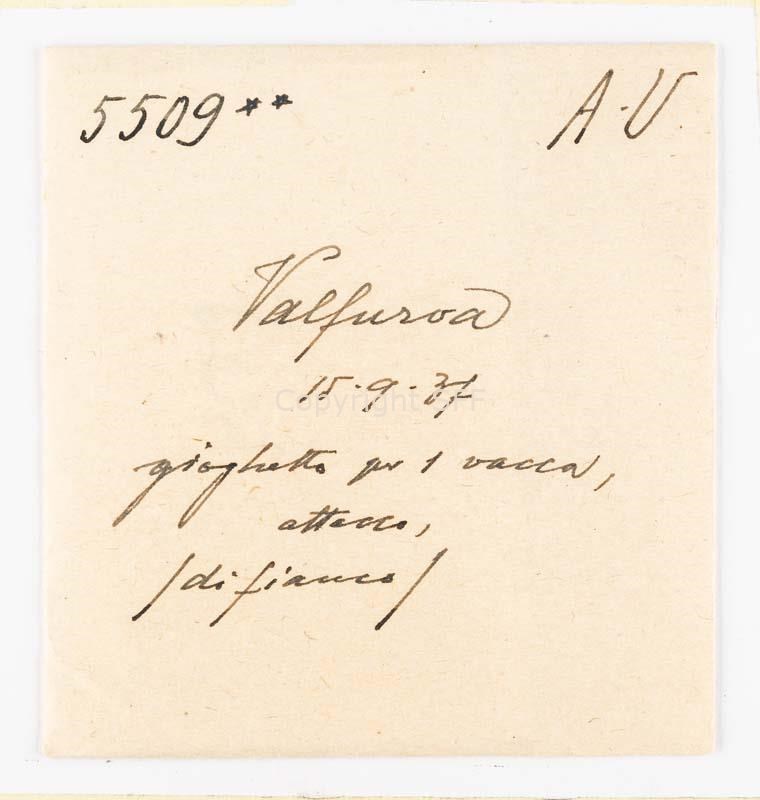 5509** A·U
Valfurva
15·9·37
gioghetto per 1 vacca,
attacco,
/di fianco/
Copyright SFF